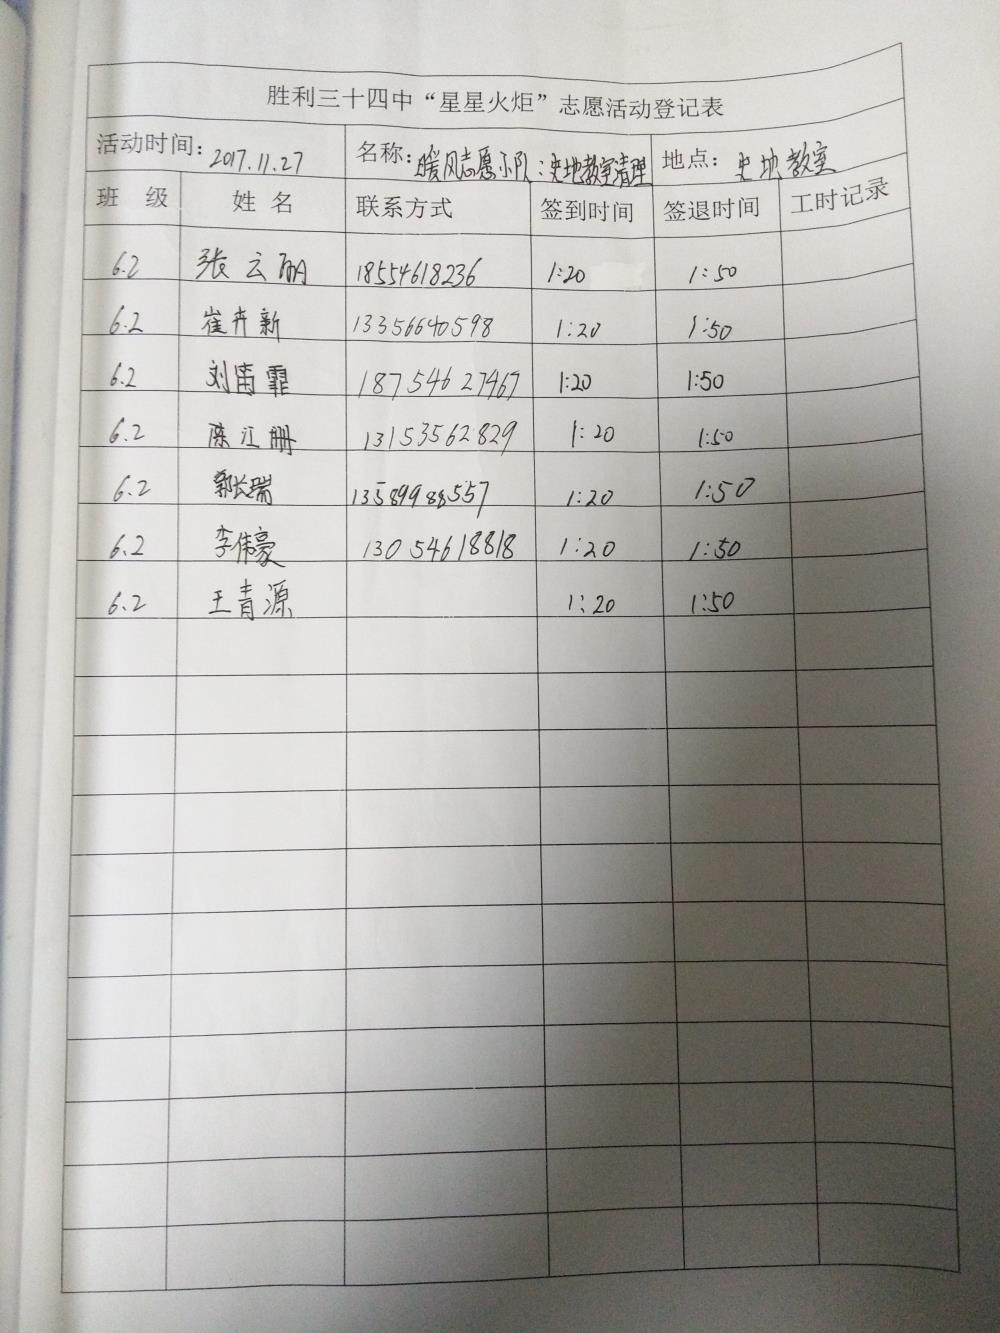 胜利三十四中“星星火炬”志愿活动登记表
活动时间：2017.11.27 名称：暖风志愿小队：史地教室清理 地点：史地教室
班 级 姓 名 联系方式 签到时间 签退时间 工时记录
6.2 张云 18554618236 1:20 1:50
6.2 崔卉新 13356640598 1:20 1:50
6.2 刘雨霏 18754627467 1:20 1:50
6.2 陈江珊 13153562829 1:20 1:50
6.2 郭长瑞 13589988557 1:20 1:50
6.2 李伟豪 13054618818 1:20 1:50
6.2 王青源 1:20 1:50